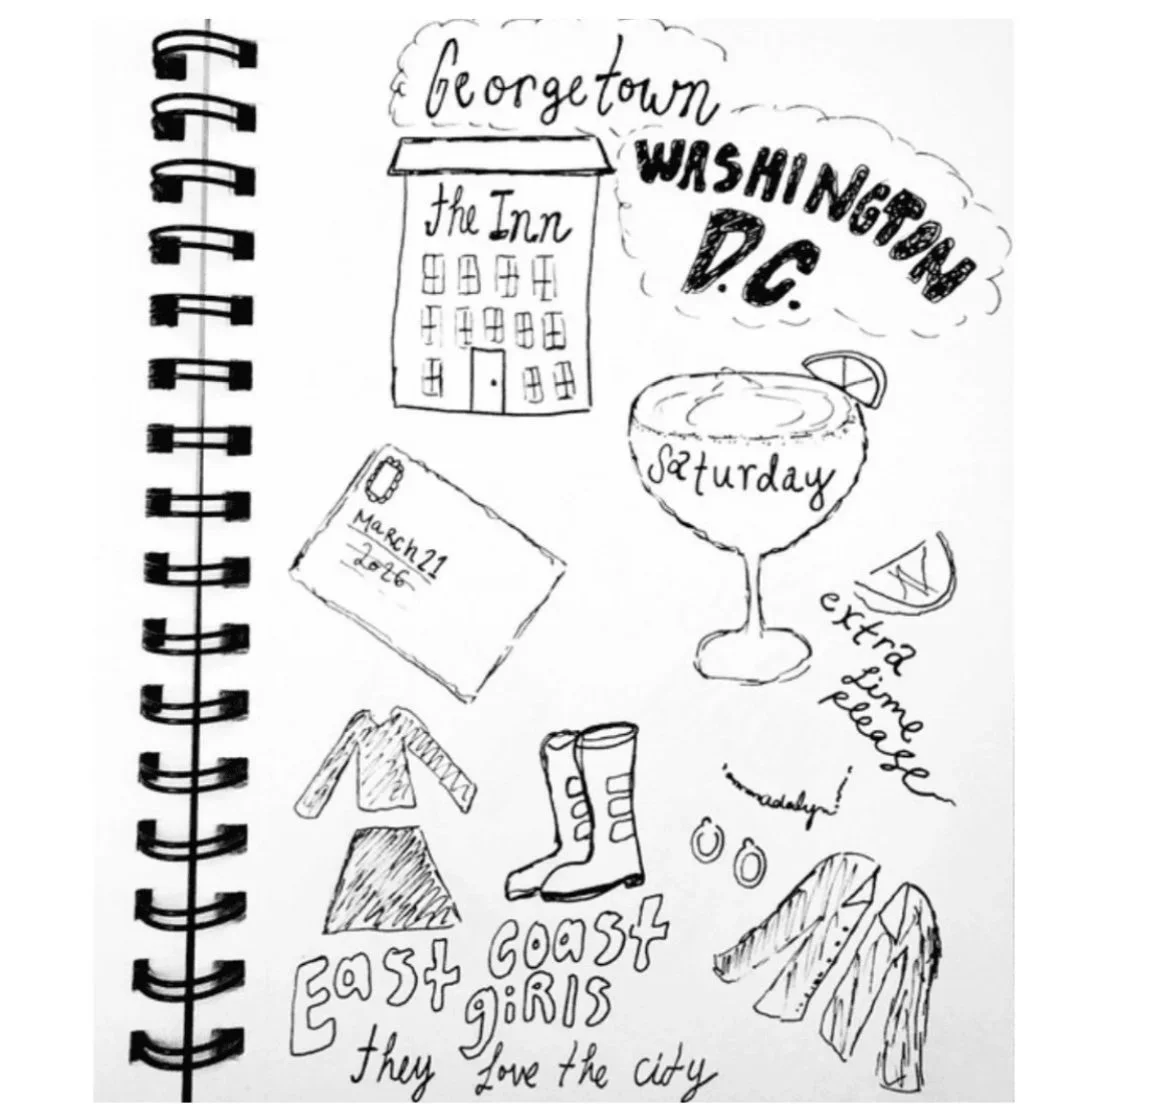 Georgetown
WASHINGTON
D.C.
the Inn
Saturday
March 21
2026
extra
Lime
please
madalyn
East Coast
giRls
they love the city